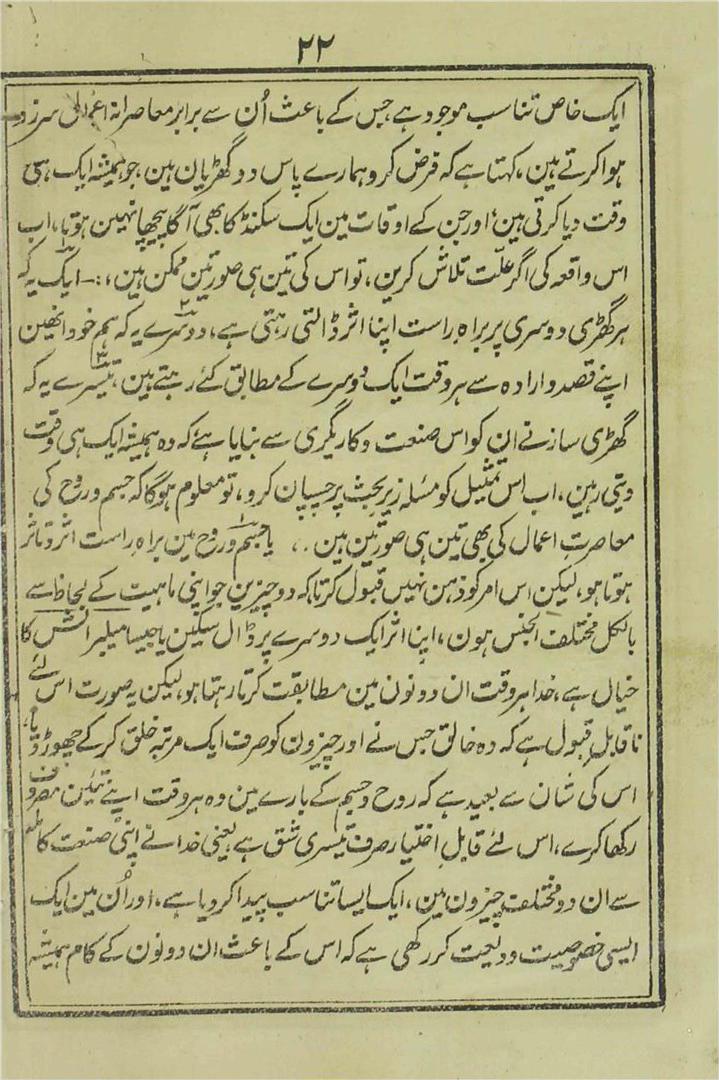 ۲۲
ایک خاص تناسب موجود ہے، جس کے باعث اُن سے برابر معاصرانہ اعمال سرزد
ہوا کرتے ہین، کہتا ہے کہ فرض کرو ہمارے پاس دو گھڑیان ہین، جو ہمیشہ ایک ہی
وقت دیا کرتی ہین، اور جن کے اوقات مین ایک سکنڈ کا بھی آگا پیچھا نہین ہوتا، اب
اس واقعہ کی اگر علّت تلاش کرین، تو اس کی تین ہی صورتین ممکن ہین، :۔ ایک یہ کہ
ہر گھڑی دوسری پر براہِ راست اپنا اثر ڈالتی رہتی ہے، دوسرے یہ کہ ہم خود انھین
اپنے قصد و ارادہ سے ہر وقت ایک دوسرے کے مطابق کئے رہتے ہین، تیسرے یہ کہ
گھڑی ساز نے ان کو اس صنعت و کاریگری سے بنایا ہے کہ وہ ہمیشہ ایک ہی وقت
دیتی رہین، اب اس تمثیل کو مسٔلہ زیر بحث پر چسپان کرو، تو معلوم ہوگا کہ جسم و روح کی
معاصرت اعمال کی بھی تین ہی صورتین ہین ۔، یا جسم و روح مین براہِ راست اثر و تاثر
ہوتا ہو، لیکن اس امر کو ذہن نہین قبول کرتا کہ دو چیزین جو اپنی ماہیت کے لحاظ سے
بالکل مختلف الجنس ہون، اپنا اثر ایک دوسرے پر ڈال سکین یا جیسا میلبرانش کا
خیال ہے، خدا ہر وقت ان دونون مین مطابقت کرتا رہتا ہو، لیکن یہ صورت اس لئے
ناقابلِ قبول ہے کہ وہ خالق جس نے اور چیزون کو صرف ایک مرتبہ خلق کرکے چھوڑ دیا،
اس کی شان سے بعید ہے کہ روح و جسم کے بارے مین وہ ہر وقت اپنے تئین مصروف
رکھا کرے، اس لئے قابلِ اختیار صرف تیسری شق ہے، یعنی خدا نے اپنی صنعت کاملہ
سے ان دو مختلف چیزون مین، ایک ایسا تناسب پیدا کر دیا ہے، اور اُن مین ایک
ایسی خصوصیت ودیعت کر رکھی ہے کہ اس کے باعث ان دونون کے کام ہمیشہ